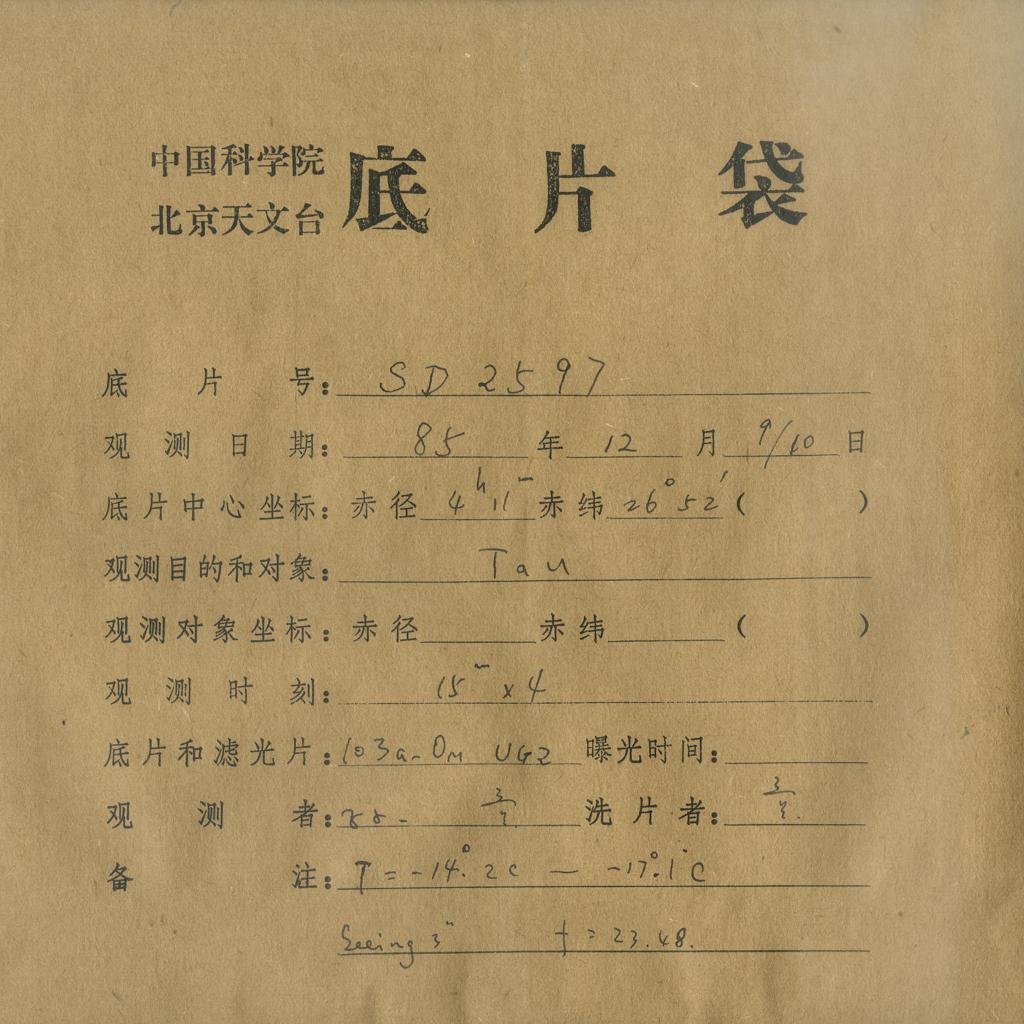 中国科学院
北京天文台
底片袋
底片号: SD 2597
观测日期: 85 年 12 月 9/10 日
底片中心坐标: 赤径 4ʰ11ᵐ 赤纬 26°52′ ( )
观测目的和对象: Tau
观测对象坐标: 赤径 赤纬 ( )
观测时刻: 15ᵐ x 4
底片和滤光片: 103a-O UG2 曝光时间:
观测者: 洗片者:
备注: T = -14°.2C — -17°.1C
Seeing 3" f = 23.48.